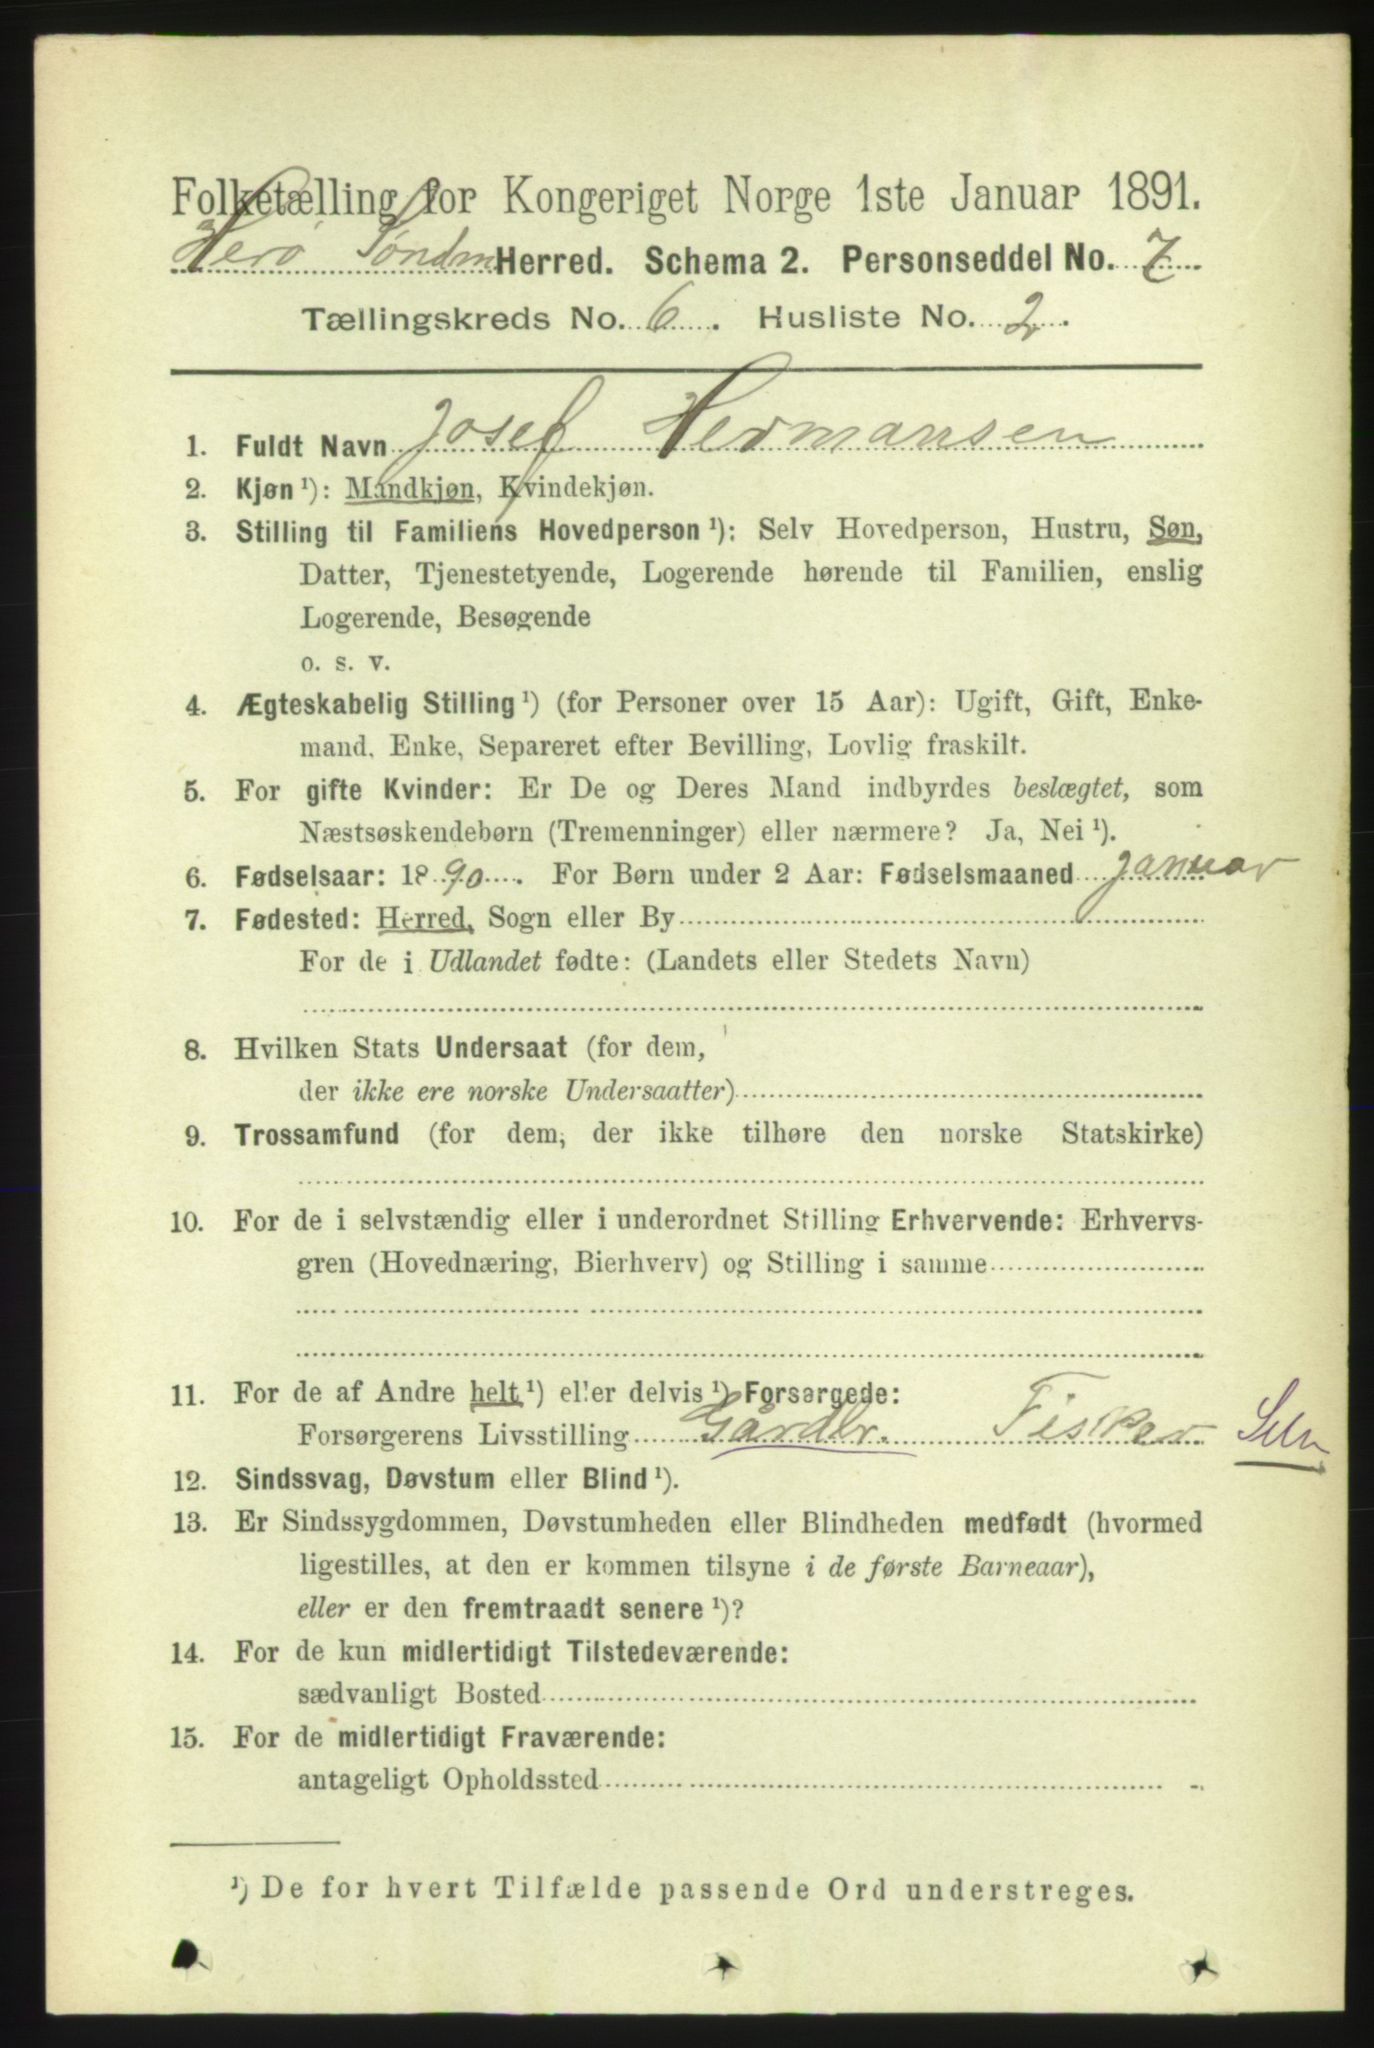 Folketælling for Kongeriget Norge 1ste Januar 1891.
Herø Søndm Herred. Schema 2. Personseddel No. 7
Tællingskreds No. 6. Husliste No. 2.
1. Fuldt Navn Josef Hermansen
2. Kjøn ¹): Mandkjøn, Kvindekjøn.
3. Stilling til Familiens Hovedperson ¹): Selv Hovedperson, Hustru, Søn,
Datter, Tjenestetyende, Logerende hørende til Familien, enslig
Logerende, Besøgende
o. s. v.
4. Ægteskabelig Stilling ¹) (for Personer over 15 Aar): Ugift, Gift, Enke-
mand, Enke, Separeret efter Bevilling, Lovlig fraskilt.
5. For gifte Kvinder: Er De og Deres Mand indbyrdes beslægtet, som
Næstsøskendebørn (Tremenninger) eller nærmere? Ja, Nei ¹).
6. Fødselsaar: 1890. For Børn under 2 Aar: Fødselsmaaned Januar
7. Fødested: Herred, Sogn eller By
For de i Udlandet fødte: (Landets eller Stedets Navn)
8. Hvilken Stats Undersaat (for dem,
der ikke ere norske Undersaatter)
9. Trossamfund (for dem, der ikke tilhøre den norske Statskirke)
10. For de i selvstændig eller i underordnet Stilling Erhvervende: Erhvervs-
gren (Hovednæring, Bierhverv) og Stilling i samme
11. For de af Andre helt ¹) eller delvis ¹) Forsørgede:
Forsørgerens Livsstilling Gårdbr. Fisker
12. Sindssvag, Døvstum eller Blind ¹).
13. Er Sindssygdommen, Døvstumheden eller Blindheden medfødt (hvormed
ligestilles, at den er kommen tilsyne i de første Barneaar),
eller er den fremtraadt senere ¹)?
14. For de kun midlertidigt Tilstedeværende:
sædvanligt Bosted
15. For de midlertidigt Fraværende:
antageligt Opholdssted
¹) De for hvert Tilfælde passende Ord understreges.